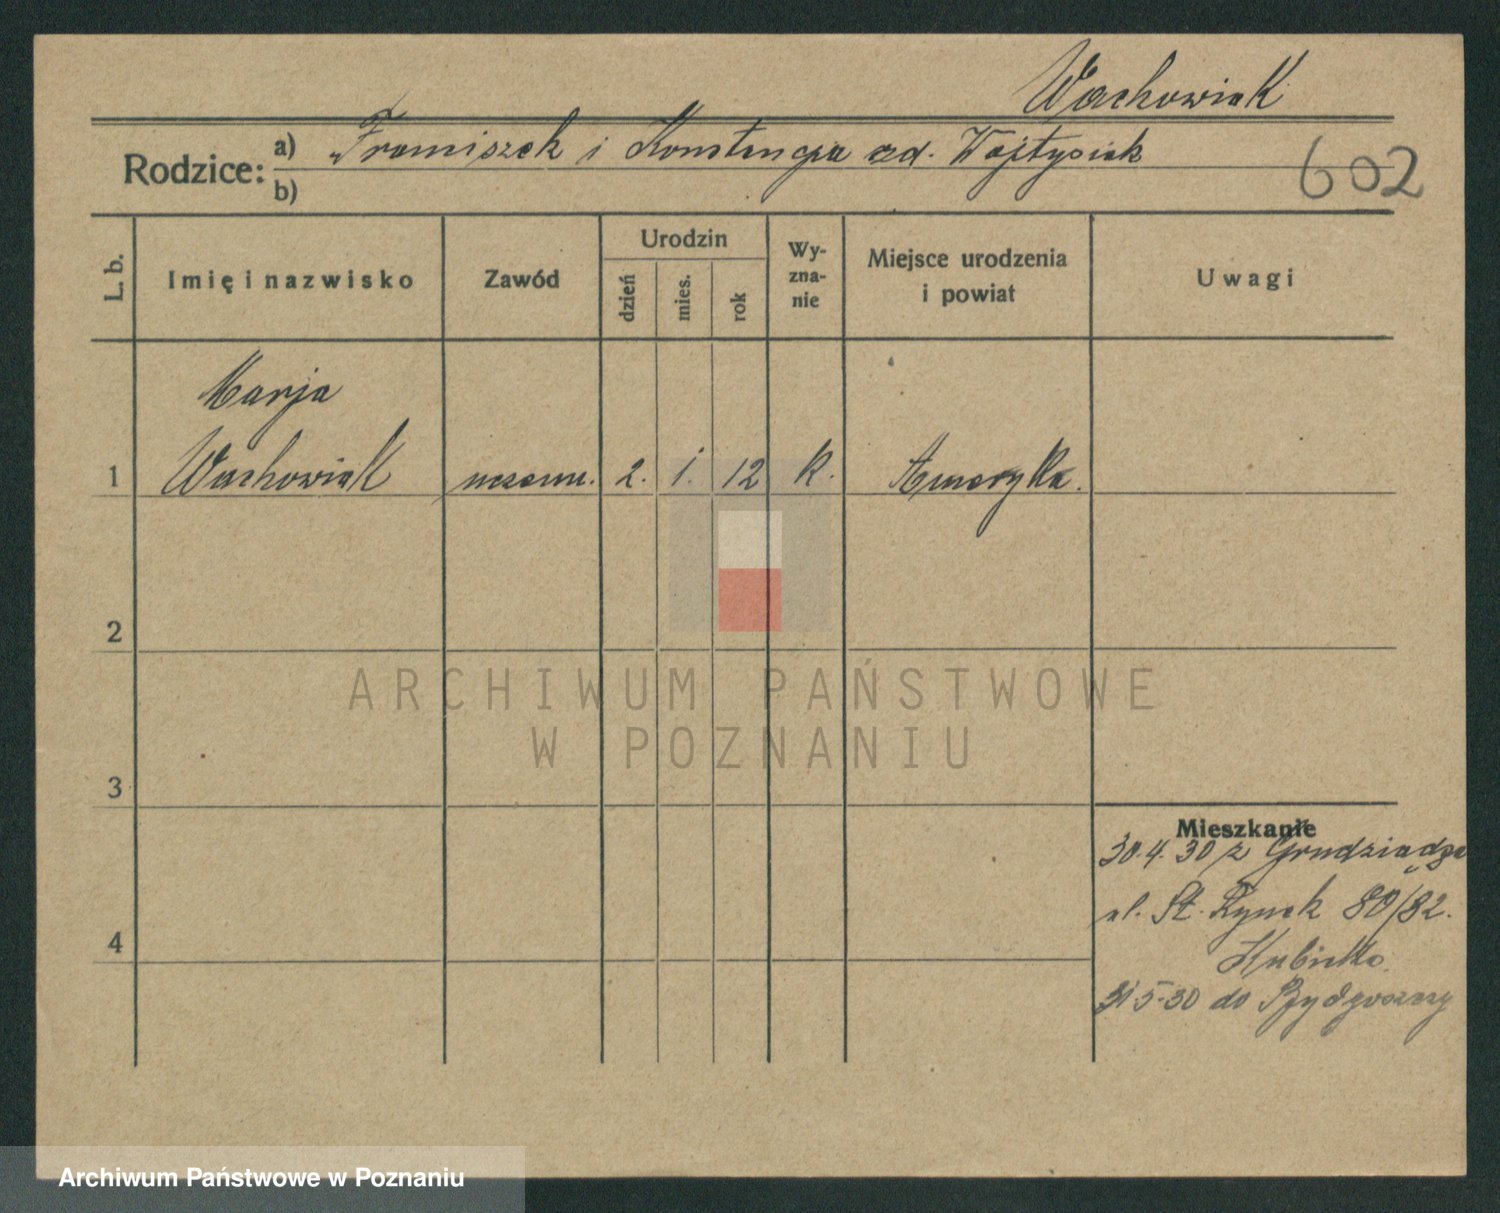 Wachowiak
Rodzice: a) Franciszek i Konstancja zd. Wojtysiak
b)
602
L. b.
Imię i nazwisko
Zawód
Urodzin
dzień
mies.
rok
Wy-
zna-
nie
Miejsce urodzenia
i powiat
Uwagi
Marja
1 Wachowiak uczenn. 2. 1. 12 k. Ameryka.
2
ARCHIWUM PAŃSTWOWE
W POZNANIU
3
Mieszkanie
30.4.30 z Grudziądza
ul. St. Rynek 80/82.
4
31-5-30 do Bydgoszczy
Archiwum Państwowe w Poznaniu